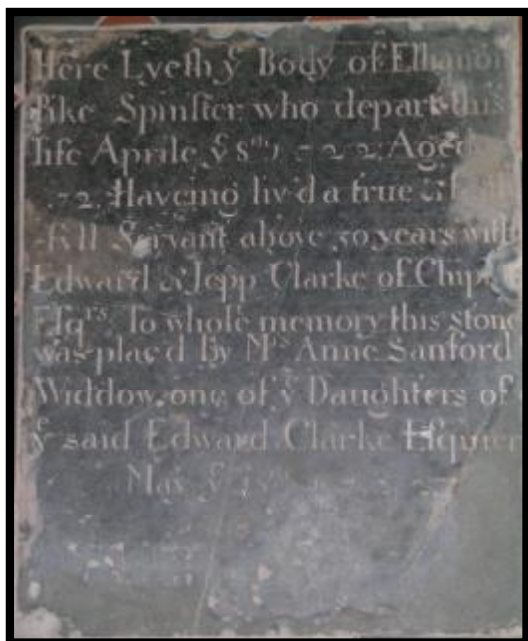 Here Lyeth yͤ Body of Ellianor
Pike Spinſter who depart this
life Aprile yͤ 8ᵗʰ 1722 Aged
72. Haveing liv'd a true &
full Servant above 50 years with
Edward & Jepp Clarke of Chip
Eſqʳˢ. To whoſe memory this ſtone
was plac'd By Mʳˢ Anne Sanford
Widdow, one of yͤ Daughters of
yͤ said Edward Clarke Eſquier
May yͤ